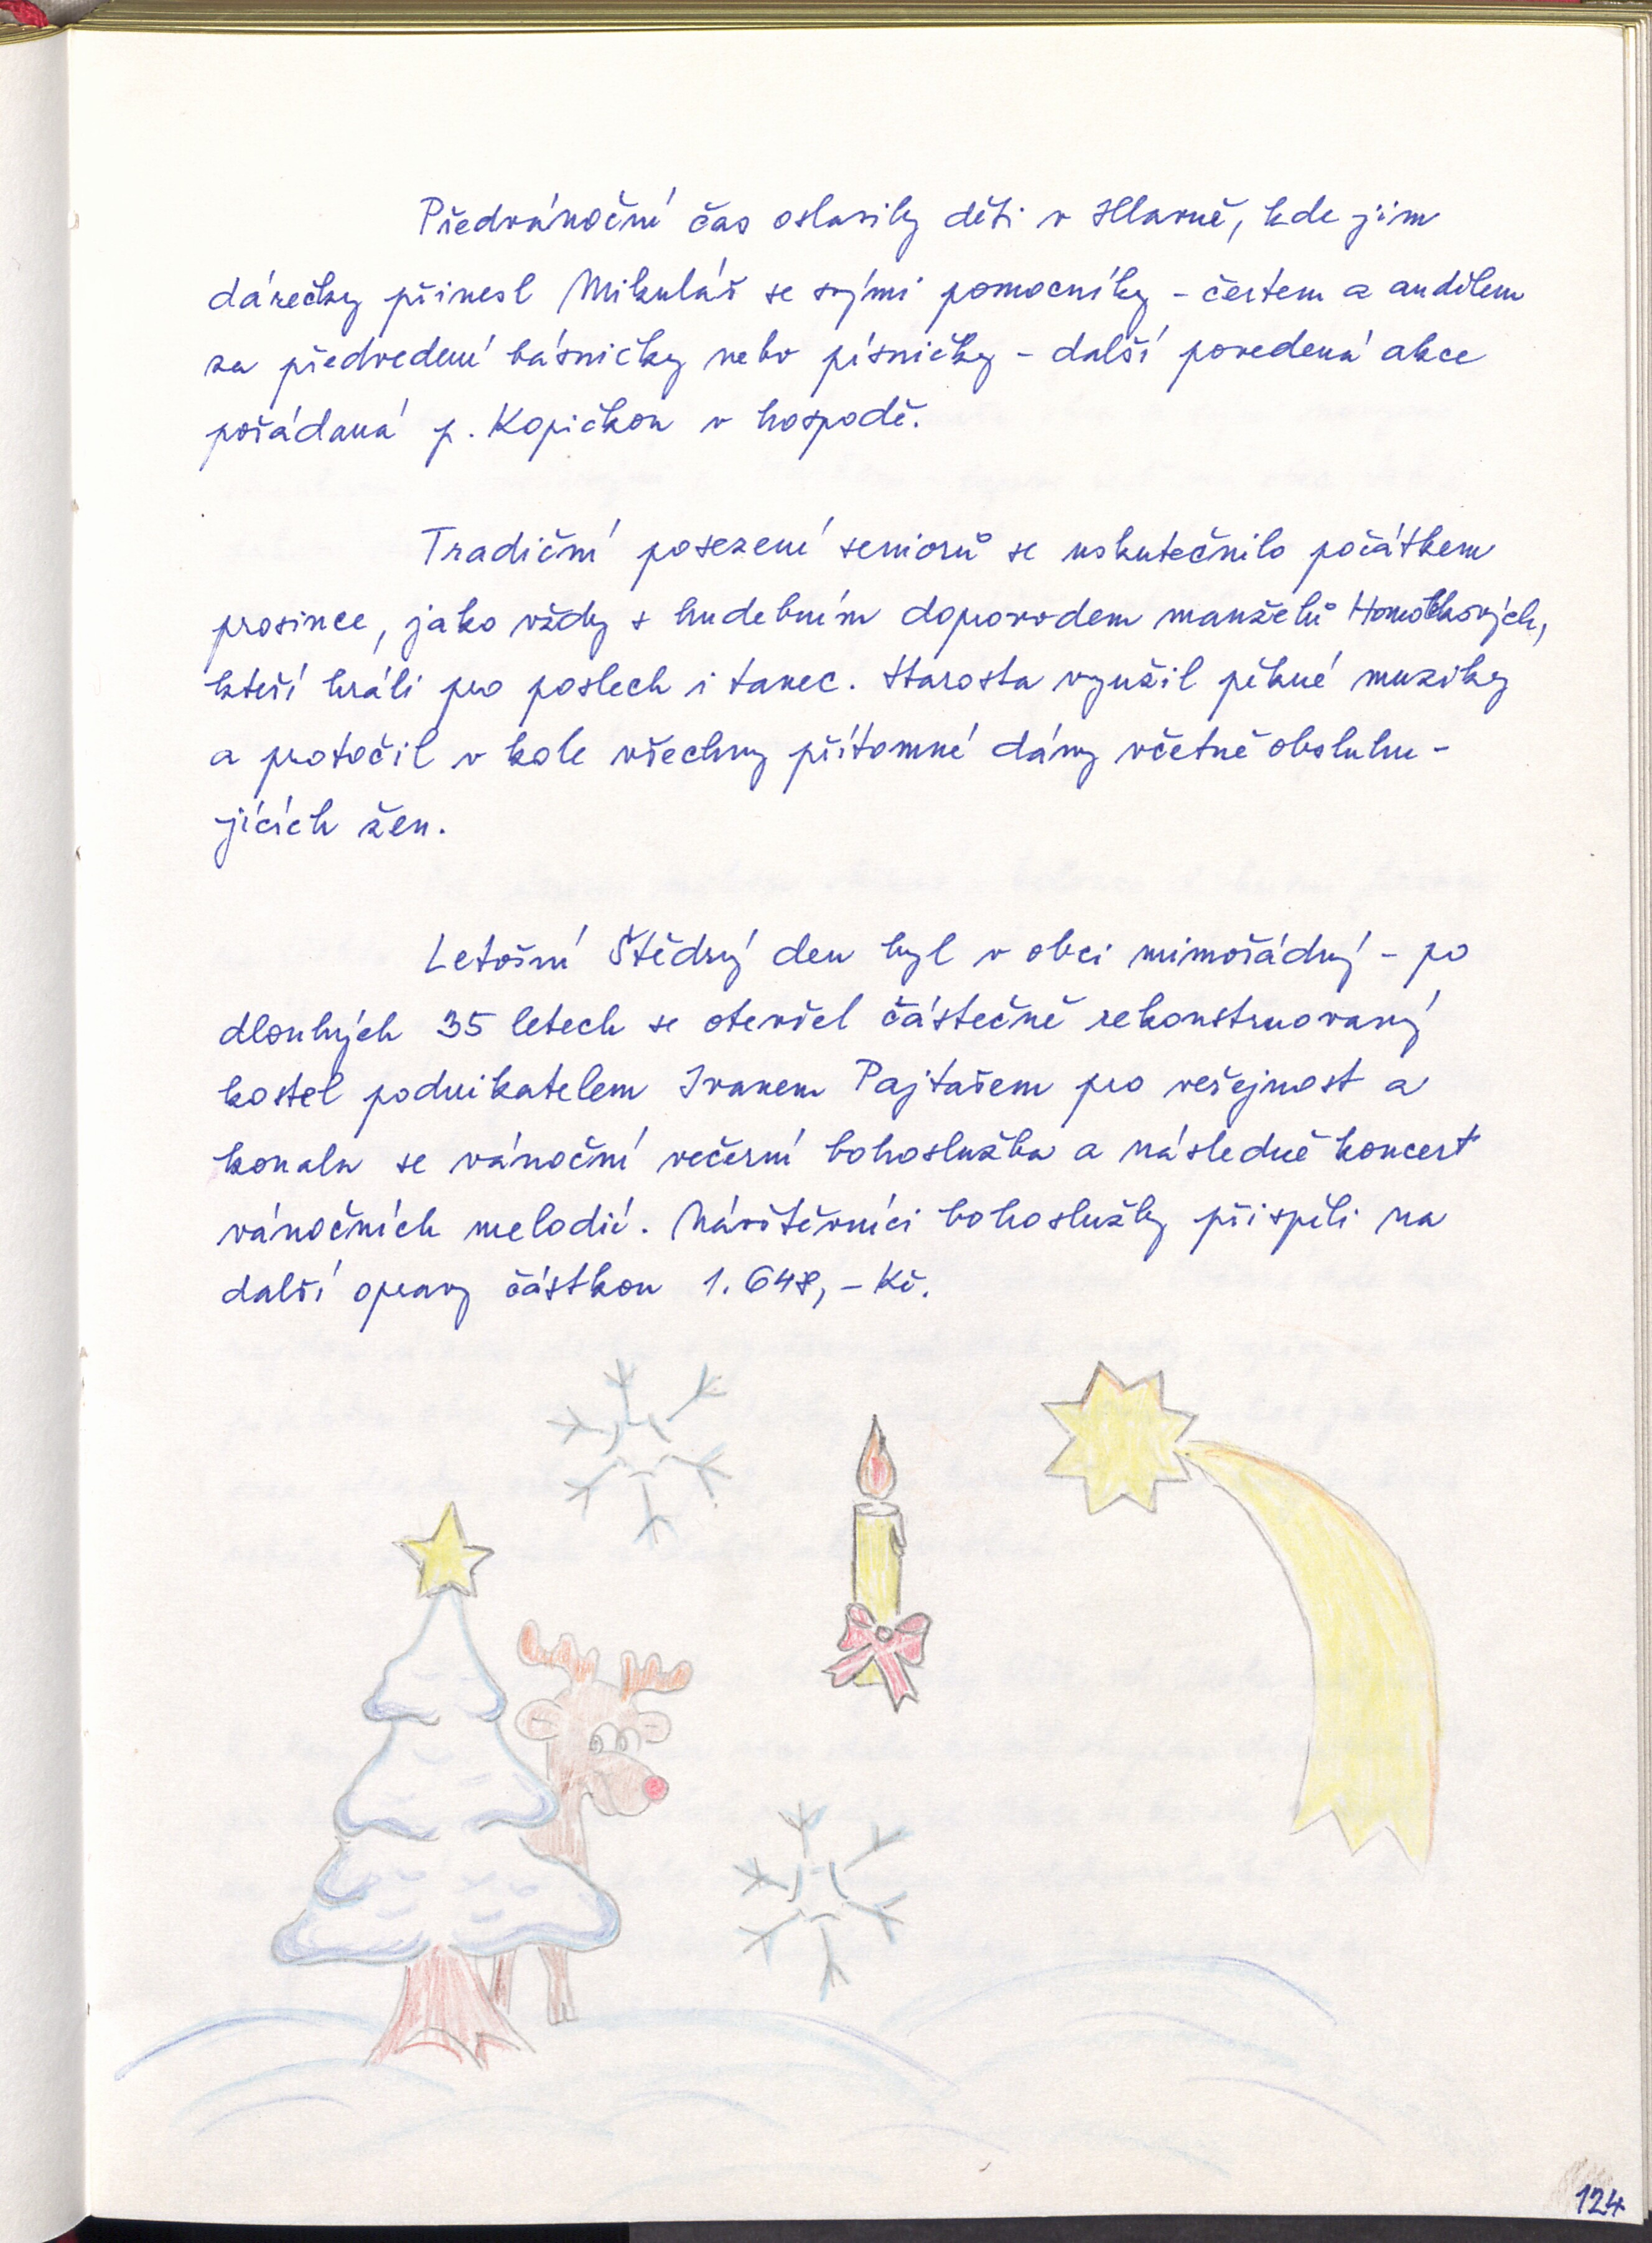 Předvánoční čas oslavily děti v Hlavně, kde jim
dárečky přinesl Mikuláš se svými pomocníky - čertem a andělem
za předvedení básničky nebo písničky - další povedená akce
pořádaná p. Kopičkou v hospodě.
Tradiční posezení seniorů se uskutečnilo počátkem
prosince, jako vždy s hudebním doprovodem manželů Homolkových,
kteří hráli pro poslech i tanec. Starosta využil pěkné muziky
a protočil v kole všechny přítomné dámy včetně obsluhu-
jících žen.
Letošní Štědrý den byl v obci mimořádný - po
dlouhých 35 letech se otevřel částečně rekonstruovaný
kostel podnikatelem Ivanem Pajtašem pro veřejnost a
konala se vánoční večerní bohoslužba a následně koncert
vánočních melodií. Návštěvníci bohoslužby přispěli na
další opravy částkou 1.648,- Kč.
124